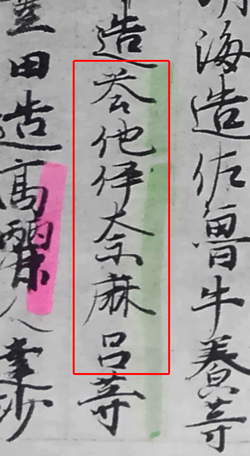 海造佐魯牛養等
造荅他伊奈麻呂等
田造高麗人
沙